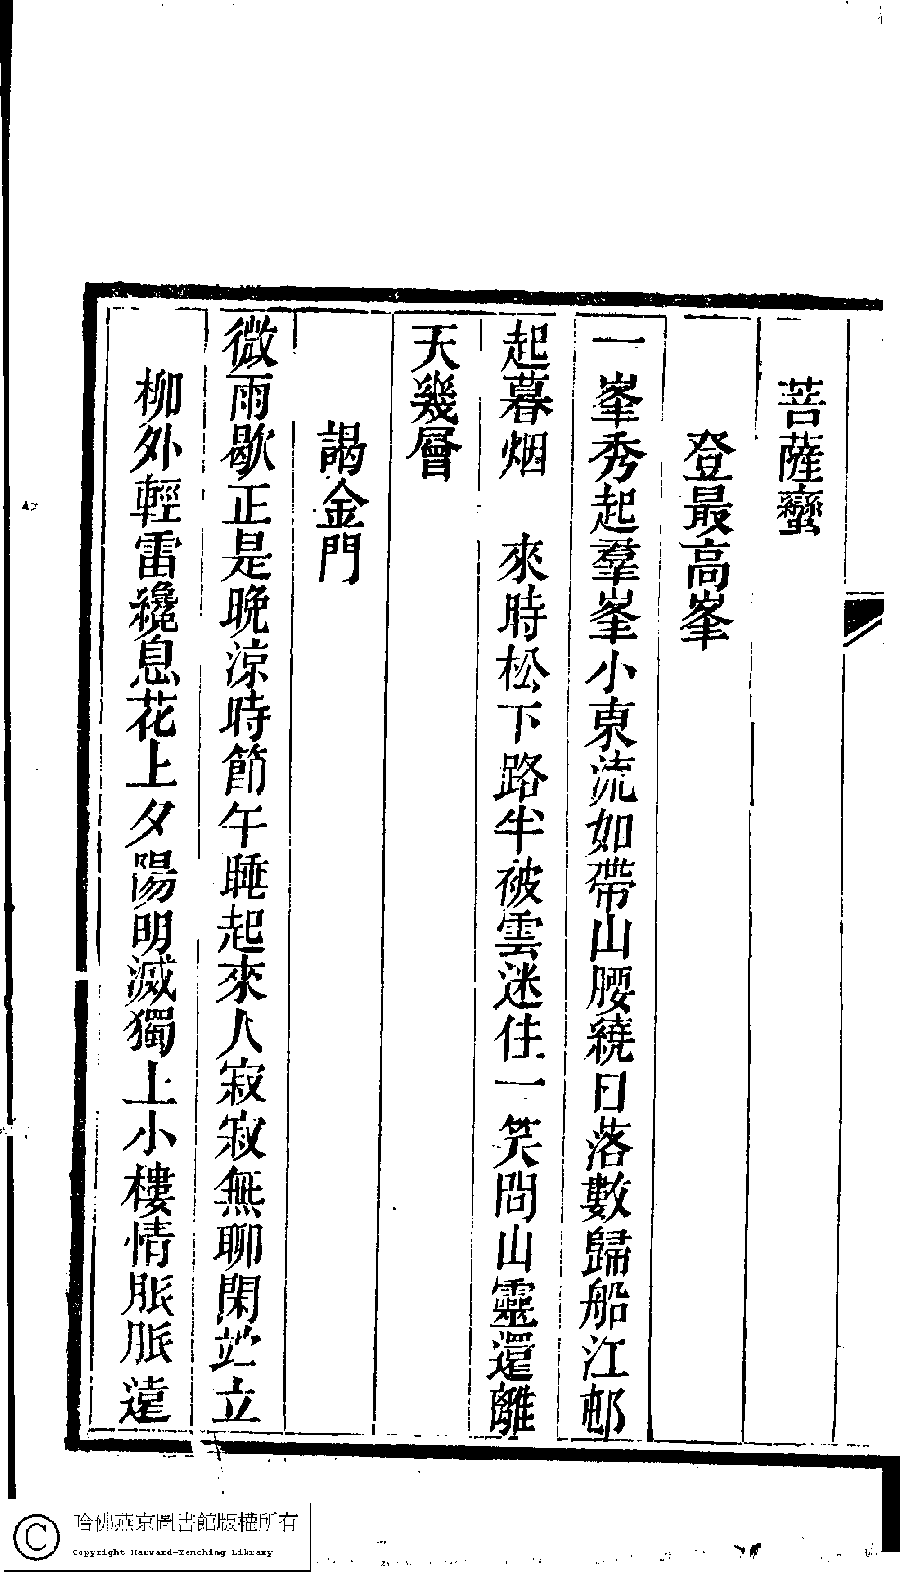 菩薩蠻
登最高峯
一峯秀起羣峯小東流如帶山腰繞日落數歸船江邨
起暮烟　來時松下路半被雲迷住一笑問山靈還離
天幾層
謁金門
微雨歇正是晚涼時節午睡起來人寂寂無聊閑竚立
柳外輕雷纔息花上夕陽明滅獨上小樓情脈脈遠
哈佛燕京圖書館版權所有
Copyright Harvard-Yenching Library